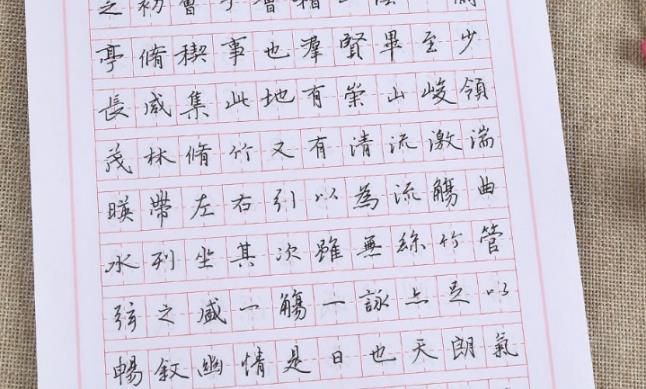 之初會于會稽
亭脩稧事也羣賢畢至少
長咸集此地有崇山峻領
茂林脩竹又有清流激湍
暎帶左右引以為流觴曲
水列坐其次雖無絲竹管
弦之盛一觴一詠亦足以
暢叙幽情是日也天朗氣